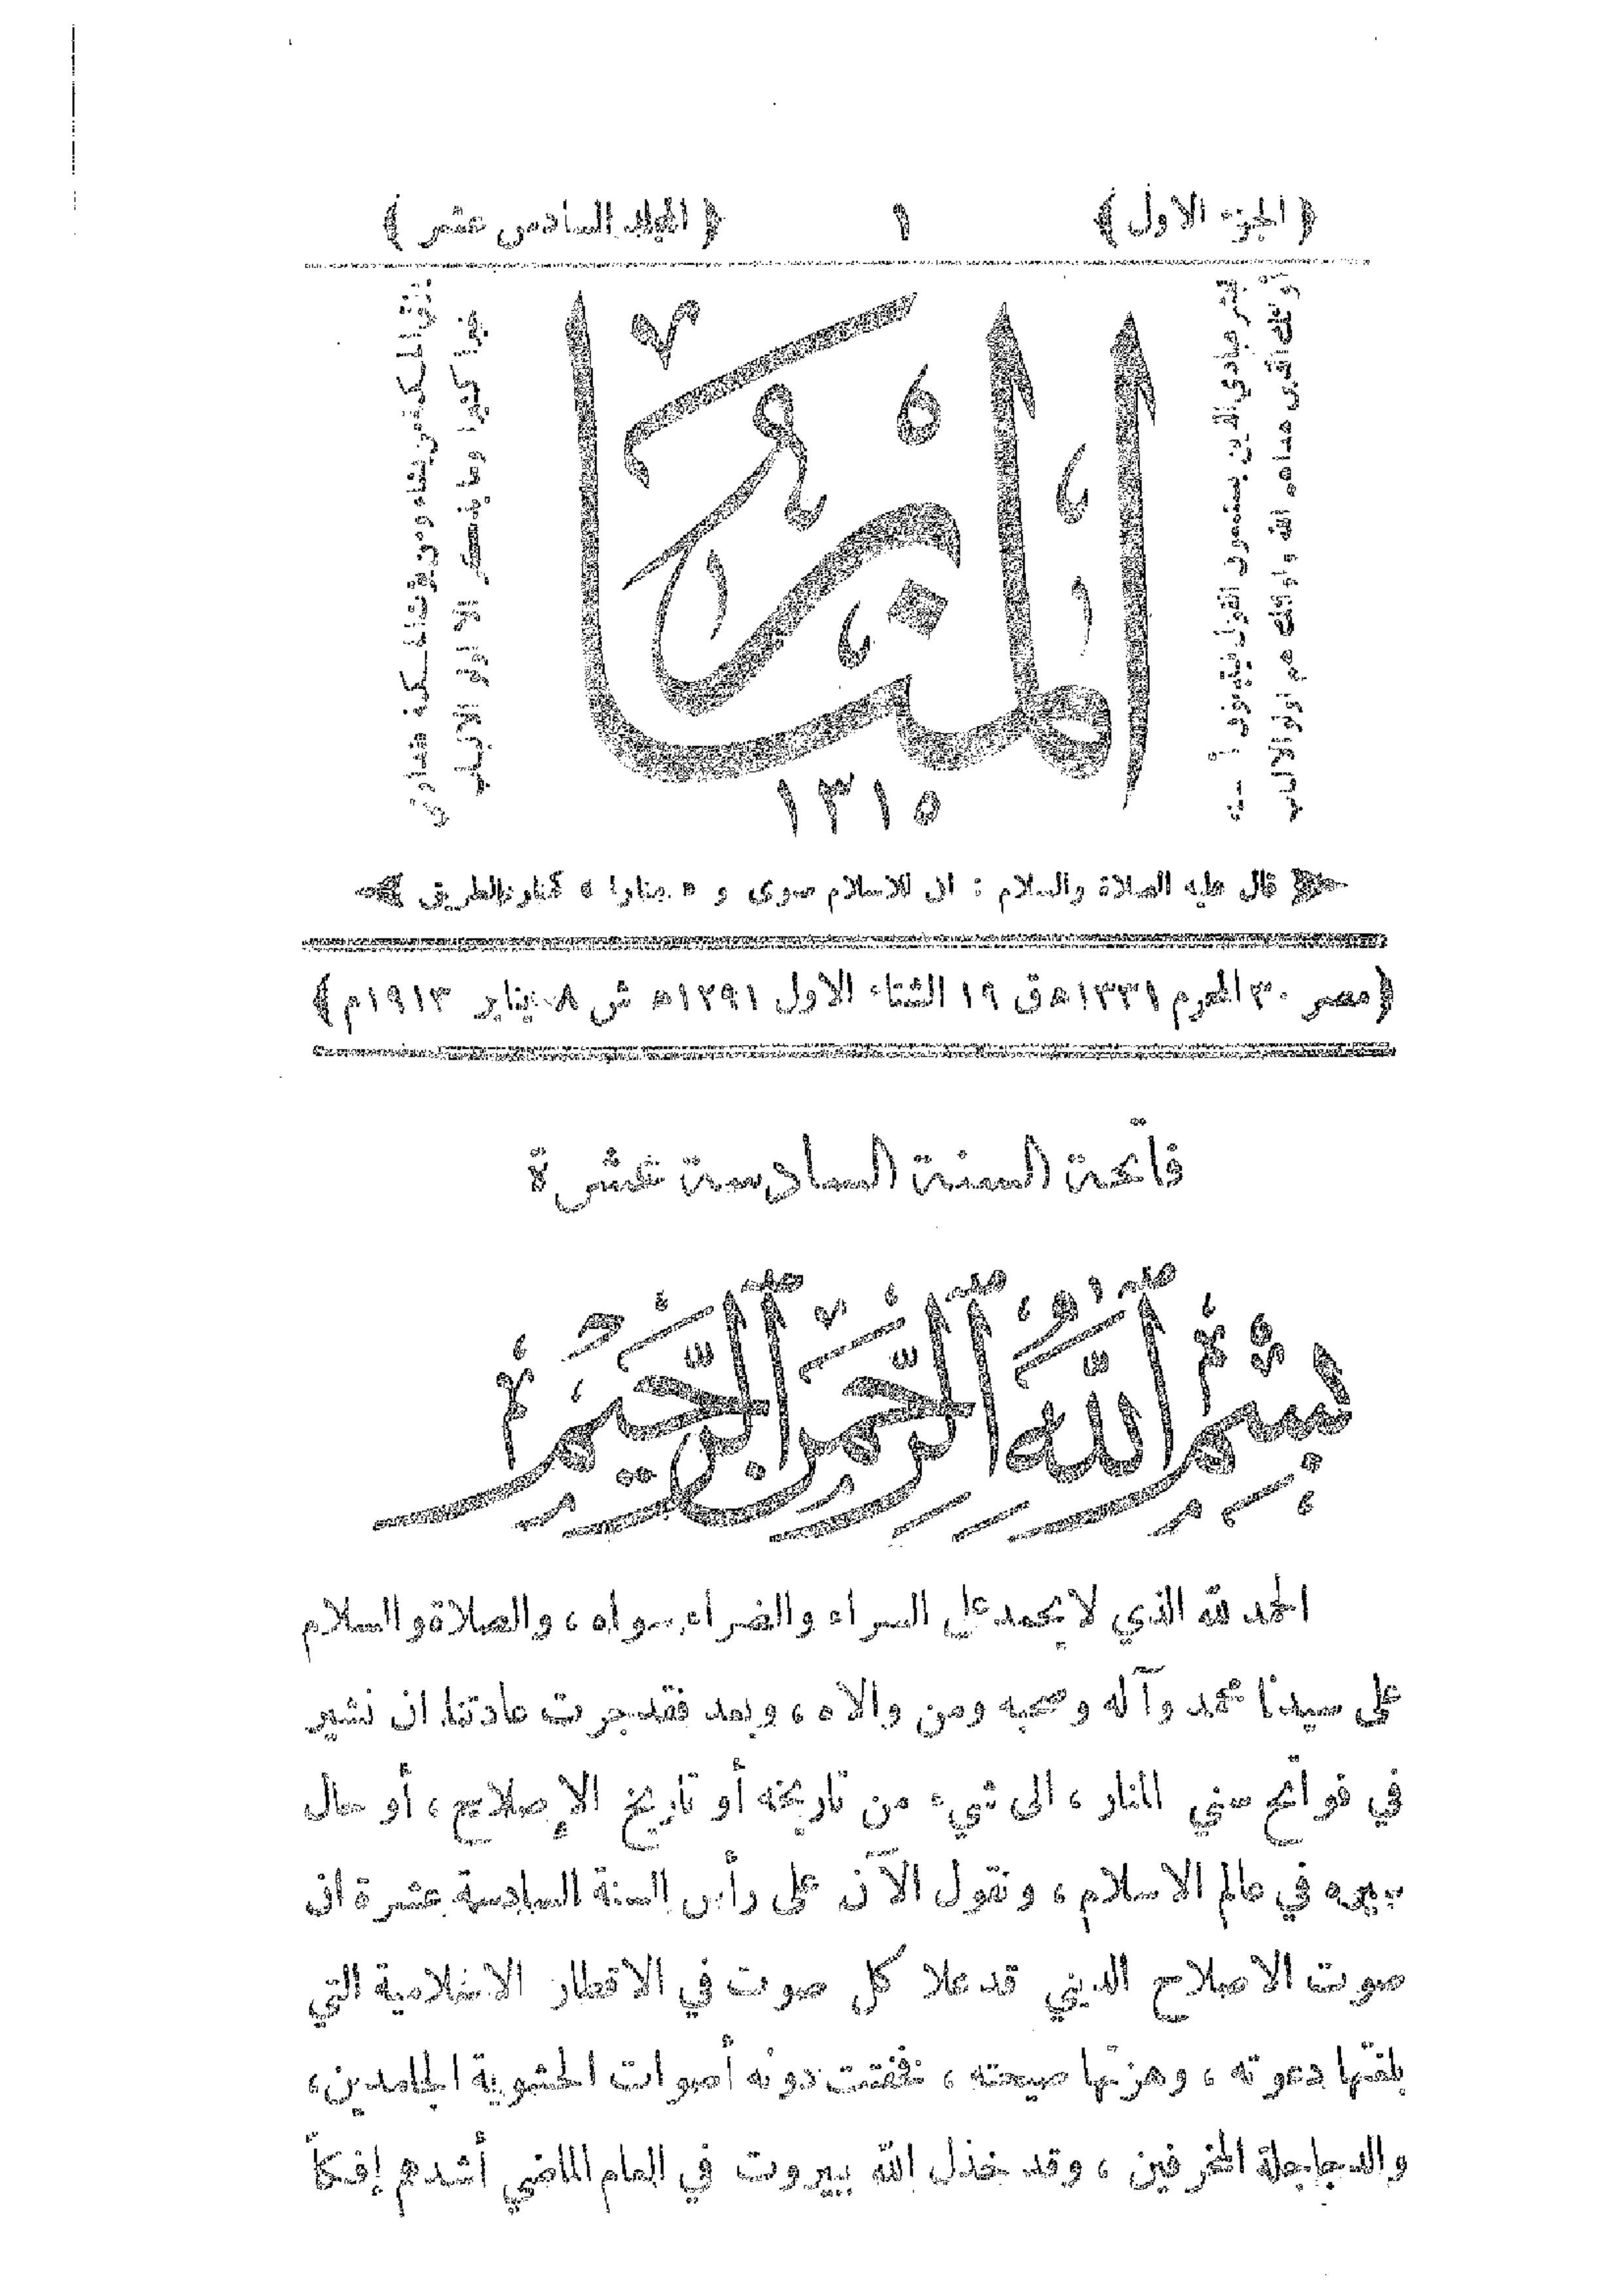 ﴿ الجزء الاول ﴾ ١ ﴿ المجلد السادس عشر ﴾
فبشر عبادي الذين يستمعون القول فيتبعون أحسنه
أولئك الذين هداهم الله وأولئك هم أولو الالباب
المنار
يؤتي الحكمة من يشاء ومن يؤت الحكمة فقد اوتي
خيرا كثيرا وما يذكر الا اولو الالباب
١٣١٥
قال عليه الصلاة والسلام : ان للاسلام صوى و « منارا » كمنار الطريق
﴿ مصر ٣٠ المحرم ١٣٣١ ه ق ١٩ الشتاء الاول ١٢٩١ ه ش ٨ يناير ١٩١٣م ﴾
فاتحة السنة السادسة عشرة
بِسْمِ اللَّهِ الرَّحْمَنِ الرَّحِيمِ
الحمد لله الذي لا يحمد على السراء والضراء سواه ، والصلاة والسلام
على سيدنا محمد وآله وصحبه ومن والاه ، وبعد فقد جرت عادتنا ان نشير
في فواتح سني المنار ، الى شيء من تاريخه أو تاريخ الإصلاح ، أو حال
سيره في عالم الاسلام ، ونقول الآن على رأس السنة السادسة عشرة ان
صوت الاصلاح الديني قد علا كل صوت في الاقطار الاسلامية التي
بلغتها دعوته ، وهزتها صيحته ، نخفتت دونه أصوات الحشوية الجامدين ،
والدجاجلة المخرفين ، وقد خذل الله ببيروت في العام الماضي أشدهم إفكاً